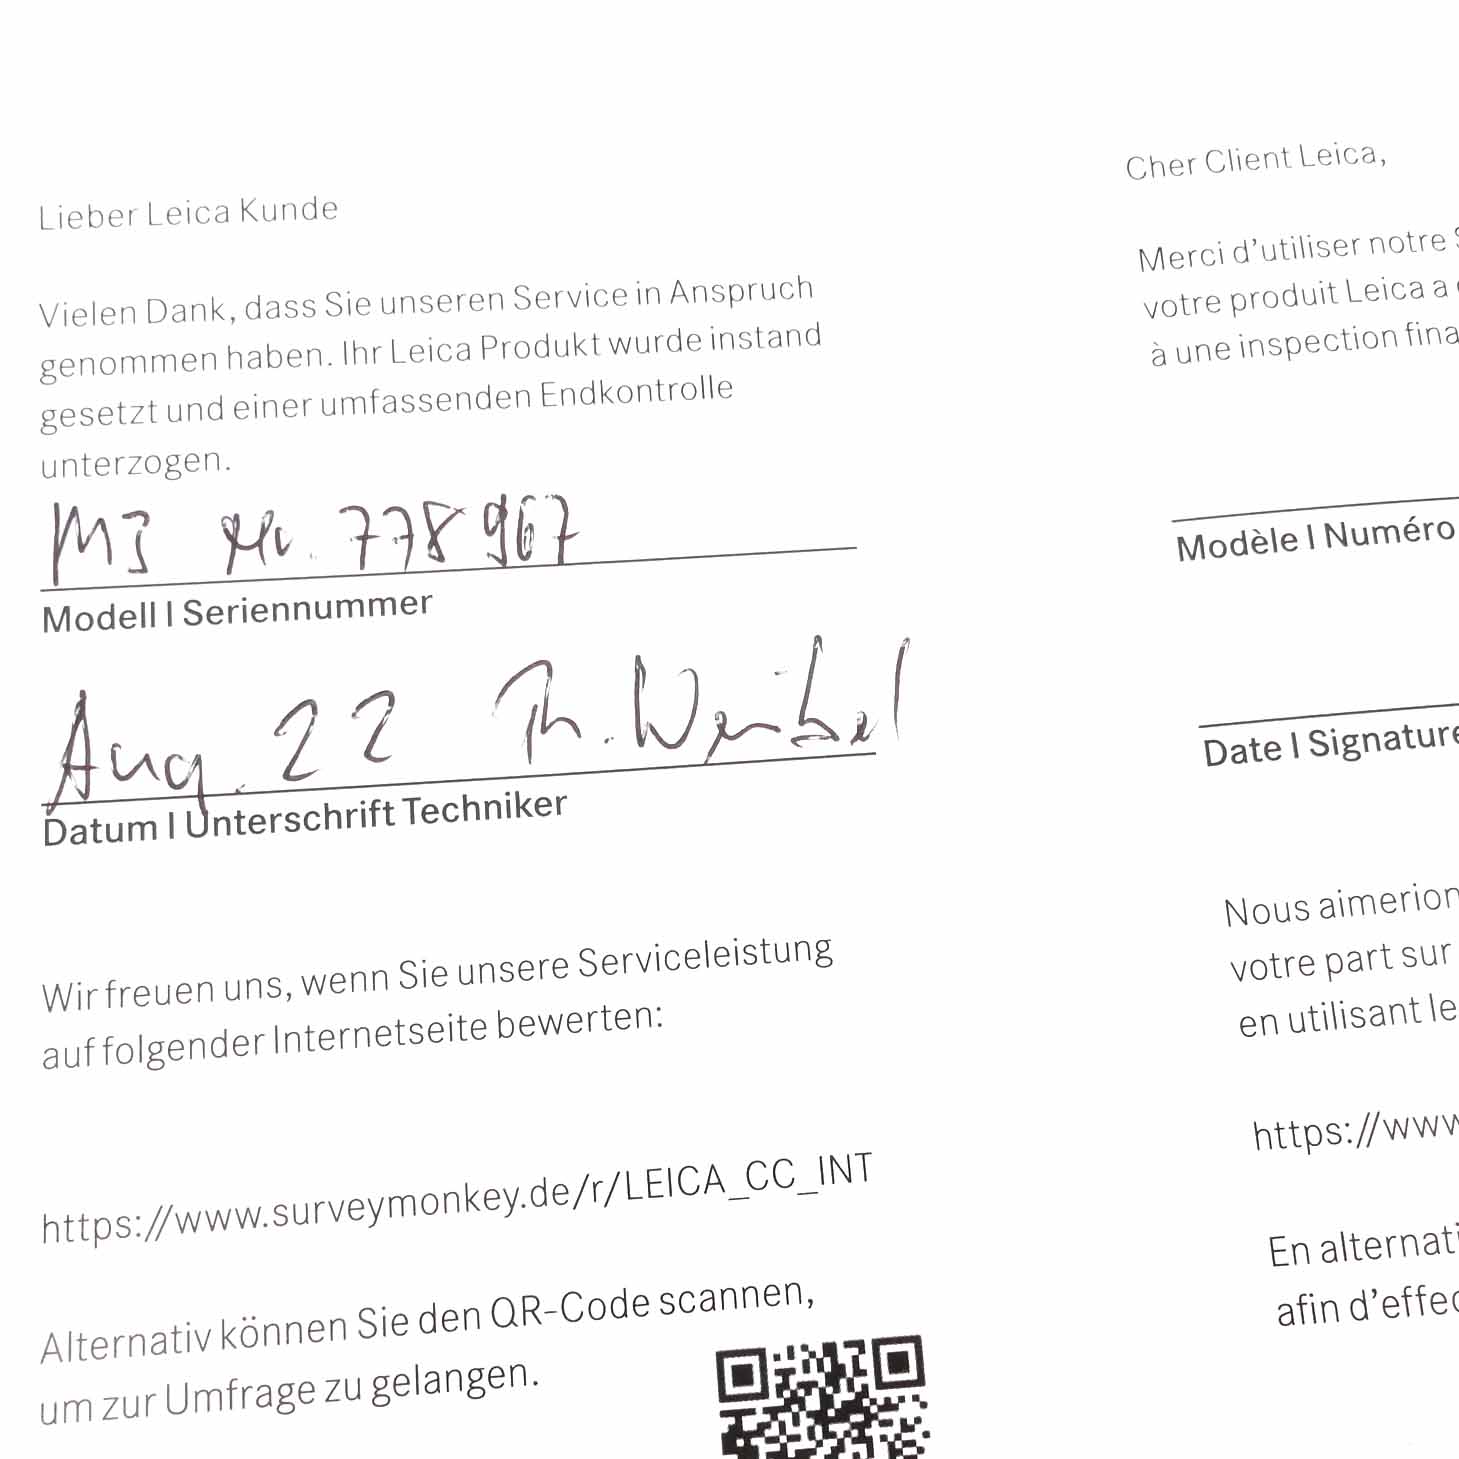 Lieber Leica Kunde
Vielen Dank, dass Sie unseren Service in Anspruch
genommen haben. Ihr Leica Produkt wurde instand
gesetzt und einer umfassenden Endkontrolle
unterzogen.
M3 Nr. 778967
Modell | Seriennummer
Aug. 22 Th. Weibel
Datum | Unterschrift Techniker
Wir freuen uns, wenn Sie unsere Serviceleistung
auf folgender Internetseite bewerten:
https://www.surveymonkey.de/r/LEICA_CC_INT
Alternativ können Sie den QR-Code scannen,
um zur Umfrage zu gelangen.
Cher Client Leica,
Merci d'utiliser notre
votre produit Leica a
à une inspection fina
Modèle | Numéro
Date | Signature
Nous aimerion
votre part sur
en utilisant le
https://www
En alternati
afin d'effec